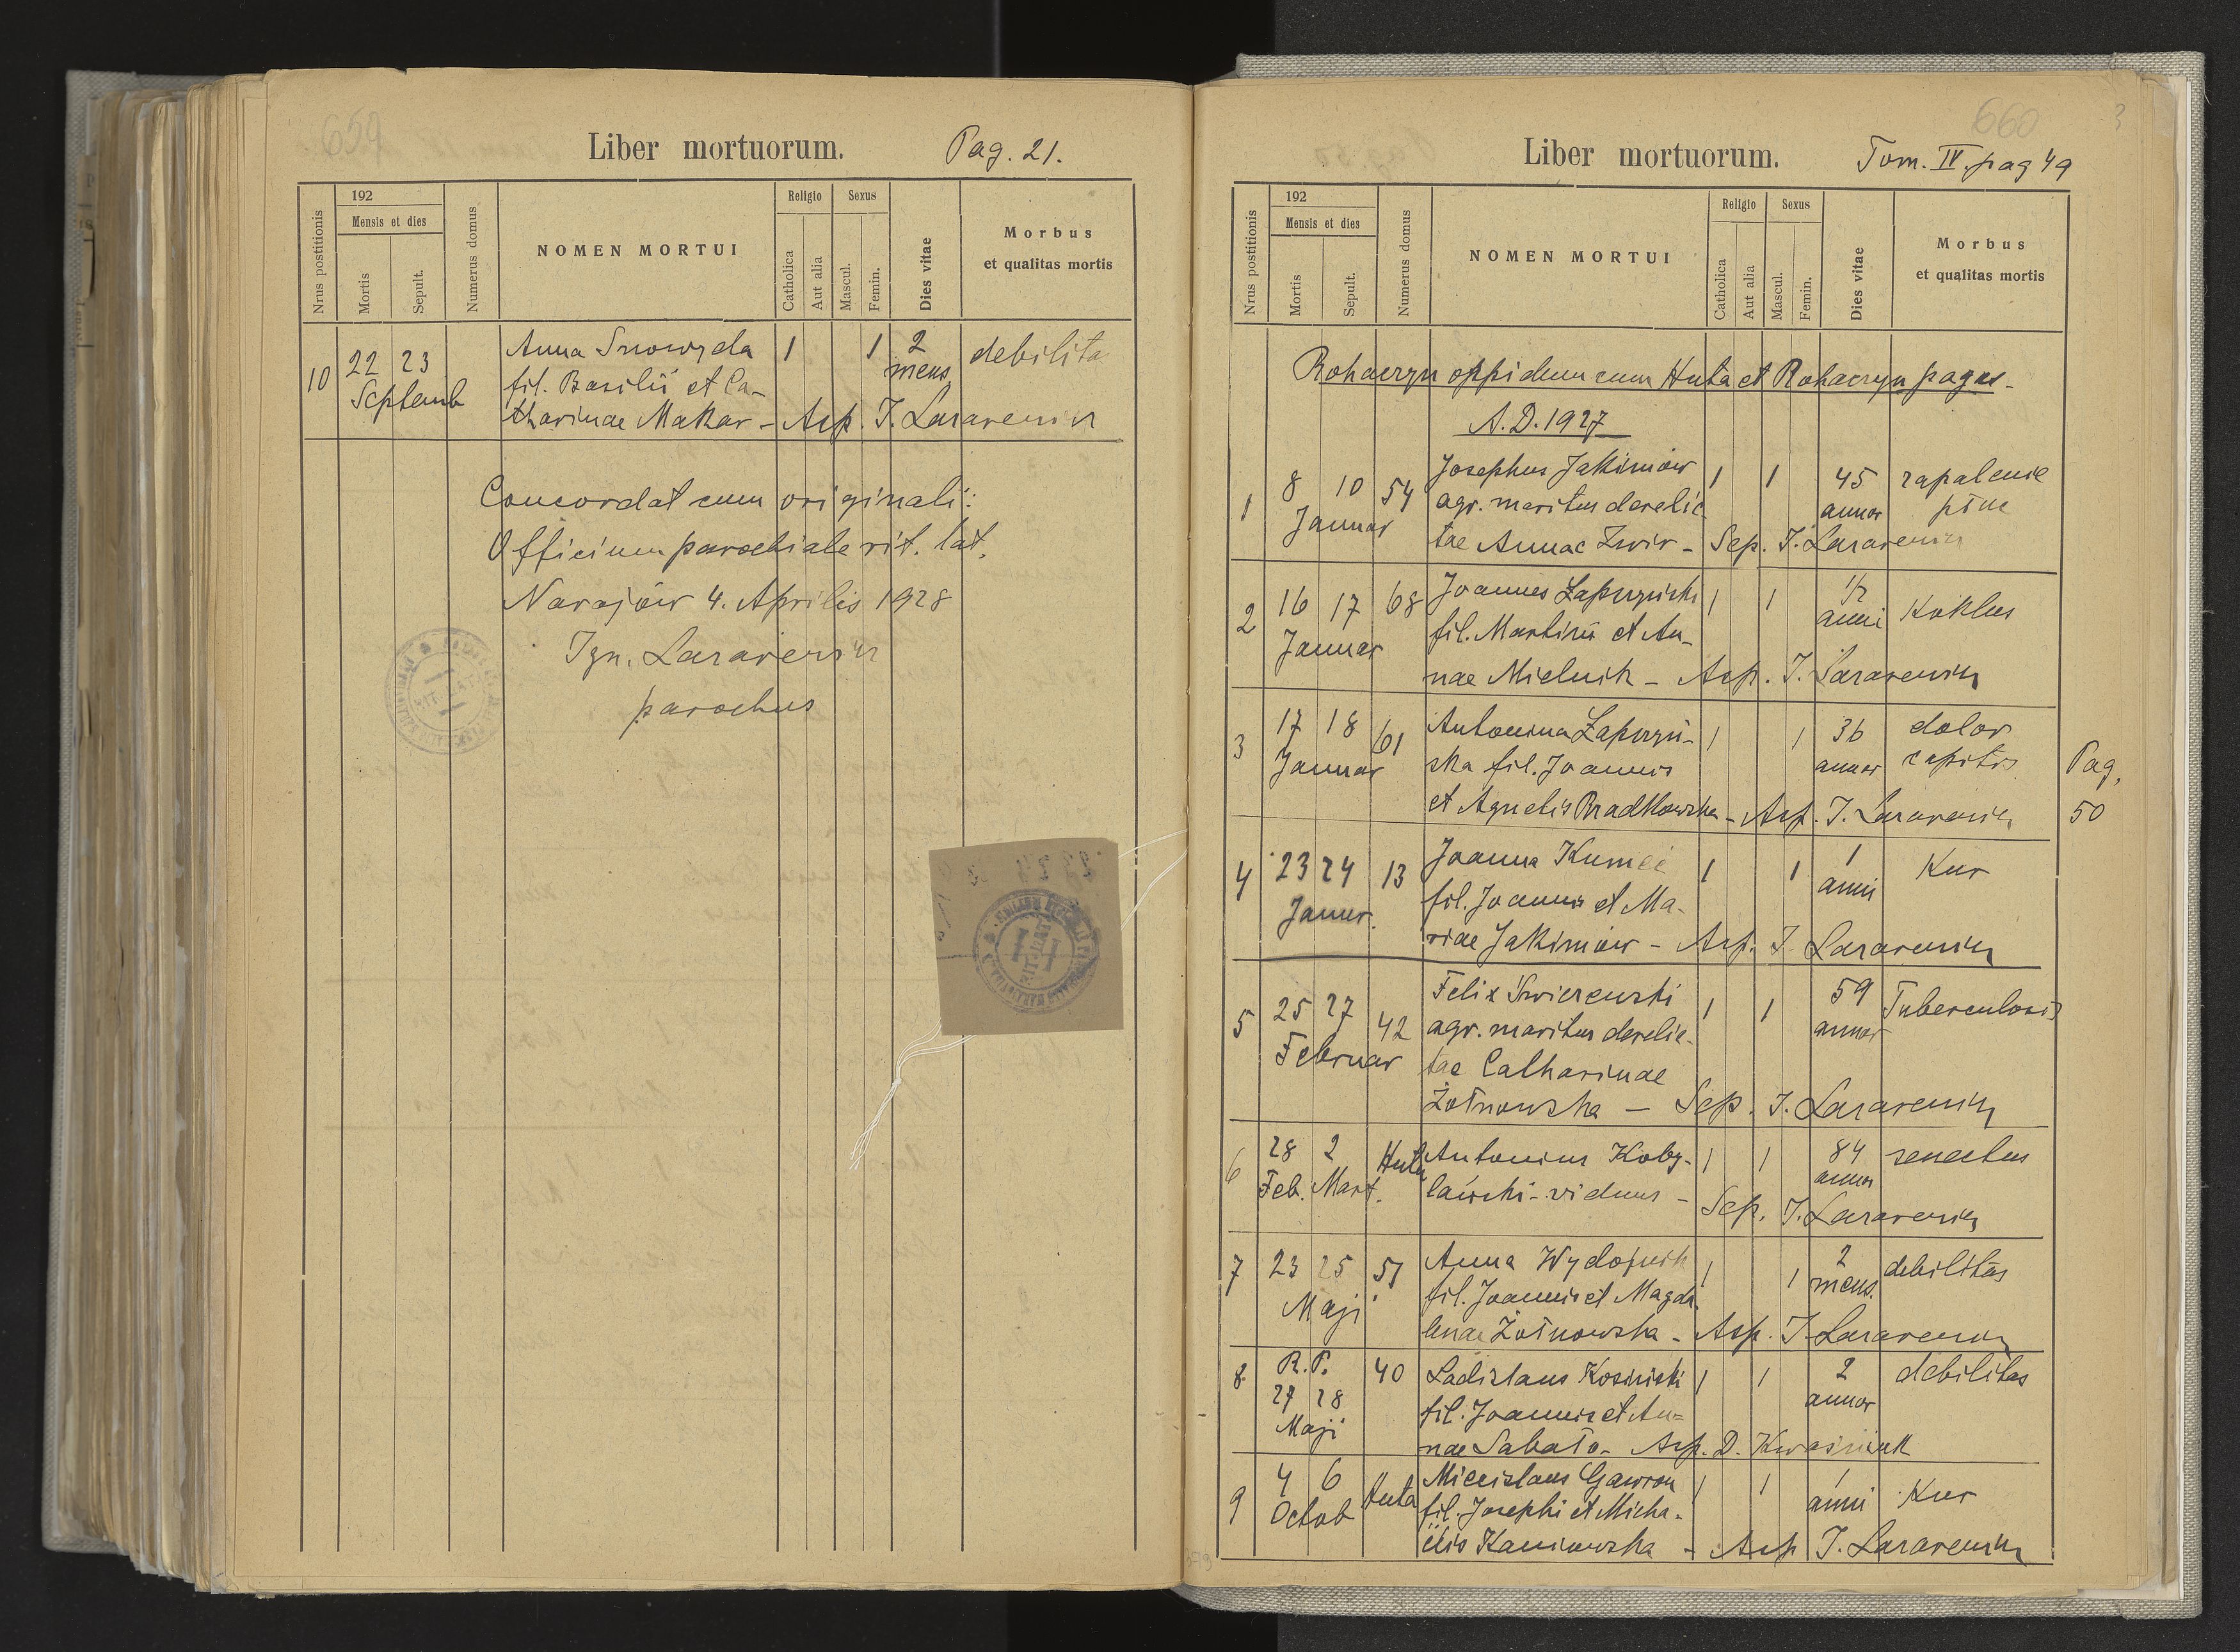 659
Liber mortuorum. Pag. 21.
Nrus postitionis
192
Mensis et dies
Mortis
Sepult.
Numerus domus
NOMEN MORTUI
Religio
Catholica
Aut alia
Sexus
Mascul.
Femin.
Dies vitae
Morbus
et qualitas mortis
10 22 23 Anna 1 1 2 debilita
Septemb fil. Basilii et Ca- mens
tharinae Makar - Asp. I. Lazarewicz
Concordat cum originali:
Officium parochiale rit. lat.
Narajów 4. Aprilis 1928
Ign. Lazarewicz
parochus
660
Liber mortuorum. Tom. IV. pag 49
Nrus postitionis
192
Mensis et dies
Mortis
Sepult.
Numerus domus
NOMEN MORTUI
Religio
Catholica
Aut alia
Sexus
Mascul.
Femin.
Dies vitae
Morbus
et qualitas mortis
Rohaczyn oppidum cum Huta et Rohaczyn pagus.
A.D. 1927
1 8 10 54 Josephus Jakimów 1 1 45 zapalenie
Januar agr. maritus derelic- annor płuc
tae Annae Zwir - Sep. I. Lazarewicz
2 16 17 68 Joannes Łapczyński 1 1 1/2 Koklus
Januar fil. Martini et An- anni
nae Mielnik - Asp. I. Lazarewicz
3 17 18 61 Antonina Łapczyń- 1 1 36 dolor
Januar ska fil. Joannis annor capitis
et Agnetis Bradkowska - Asp. I. Lazarewicz
Pag.
50
4 23 24 13 Joanna 1 1 1 Kur
Januar. fil. Joannis et Ma- anni
riae Jakimów - Asp. I. Lazarewicz
5 25 27 42 Felix 1 1 59 Tuberculosis
Februar agr. maritus derelic- annor
tae Catharinae
Żołnowska - Sep. I. Lazarewicz
6 28 2 Huta Antonius Koby- 1 1 84 senectus
Feb. Mart. lański - viduus - annor
Sep. I. Lazarewicz
7 23 25 51 Anna 1 1 2 debilitas
Maji fil. Joannis et Magda- mens.
lenae Żołnowska - Asp. I. Lazarewicz
8 R.P. 40 Ladislaus Kosiński 1 1 2 debilitas
27 28 fil. Joannis et An= annor
Maji nae Sabat - Asp. D. Kwaśniak
9 4 6 Huta Miecislaus Gawron 1 1 1 Kur
Octob fil. Josephi et Micha- anni
ëlis Kaniowska - Asp I. Lazarewicz